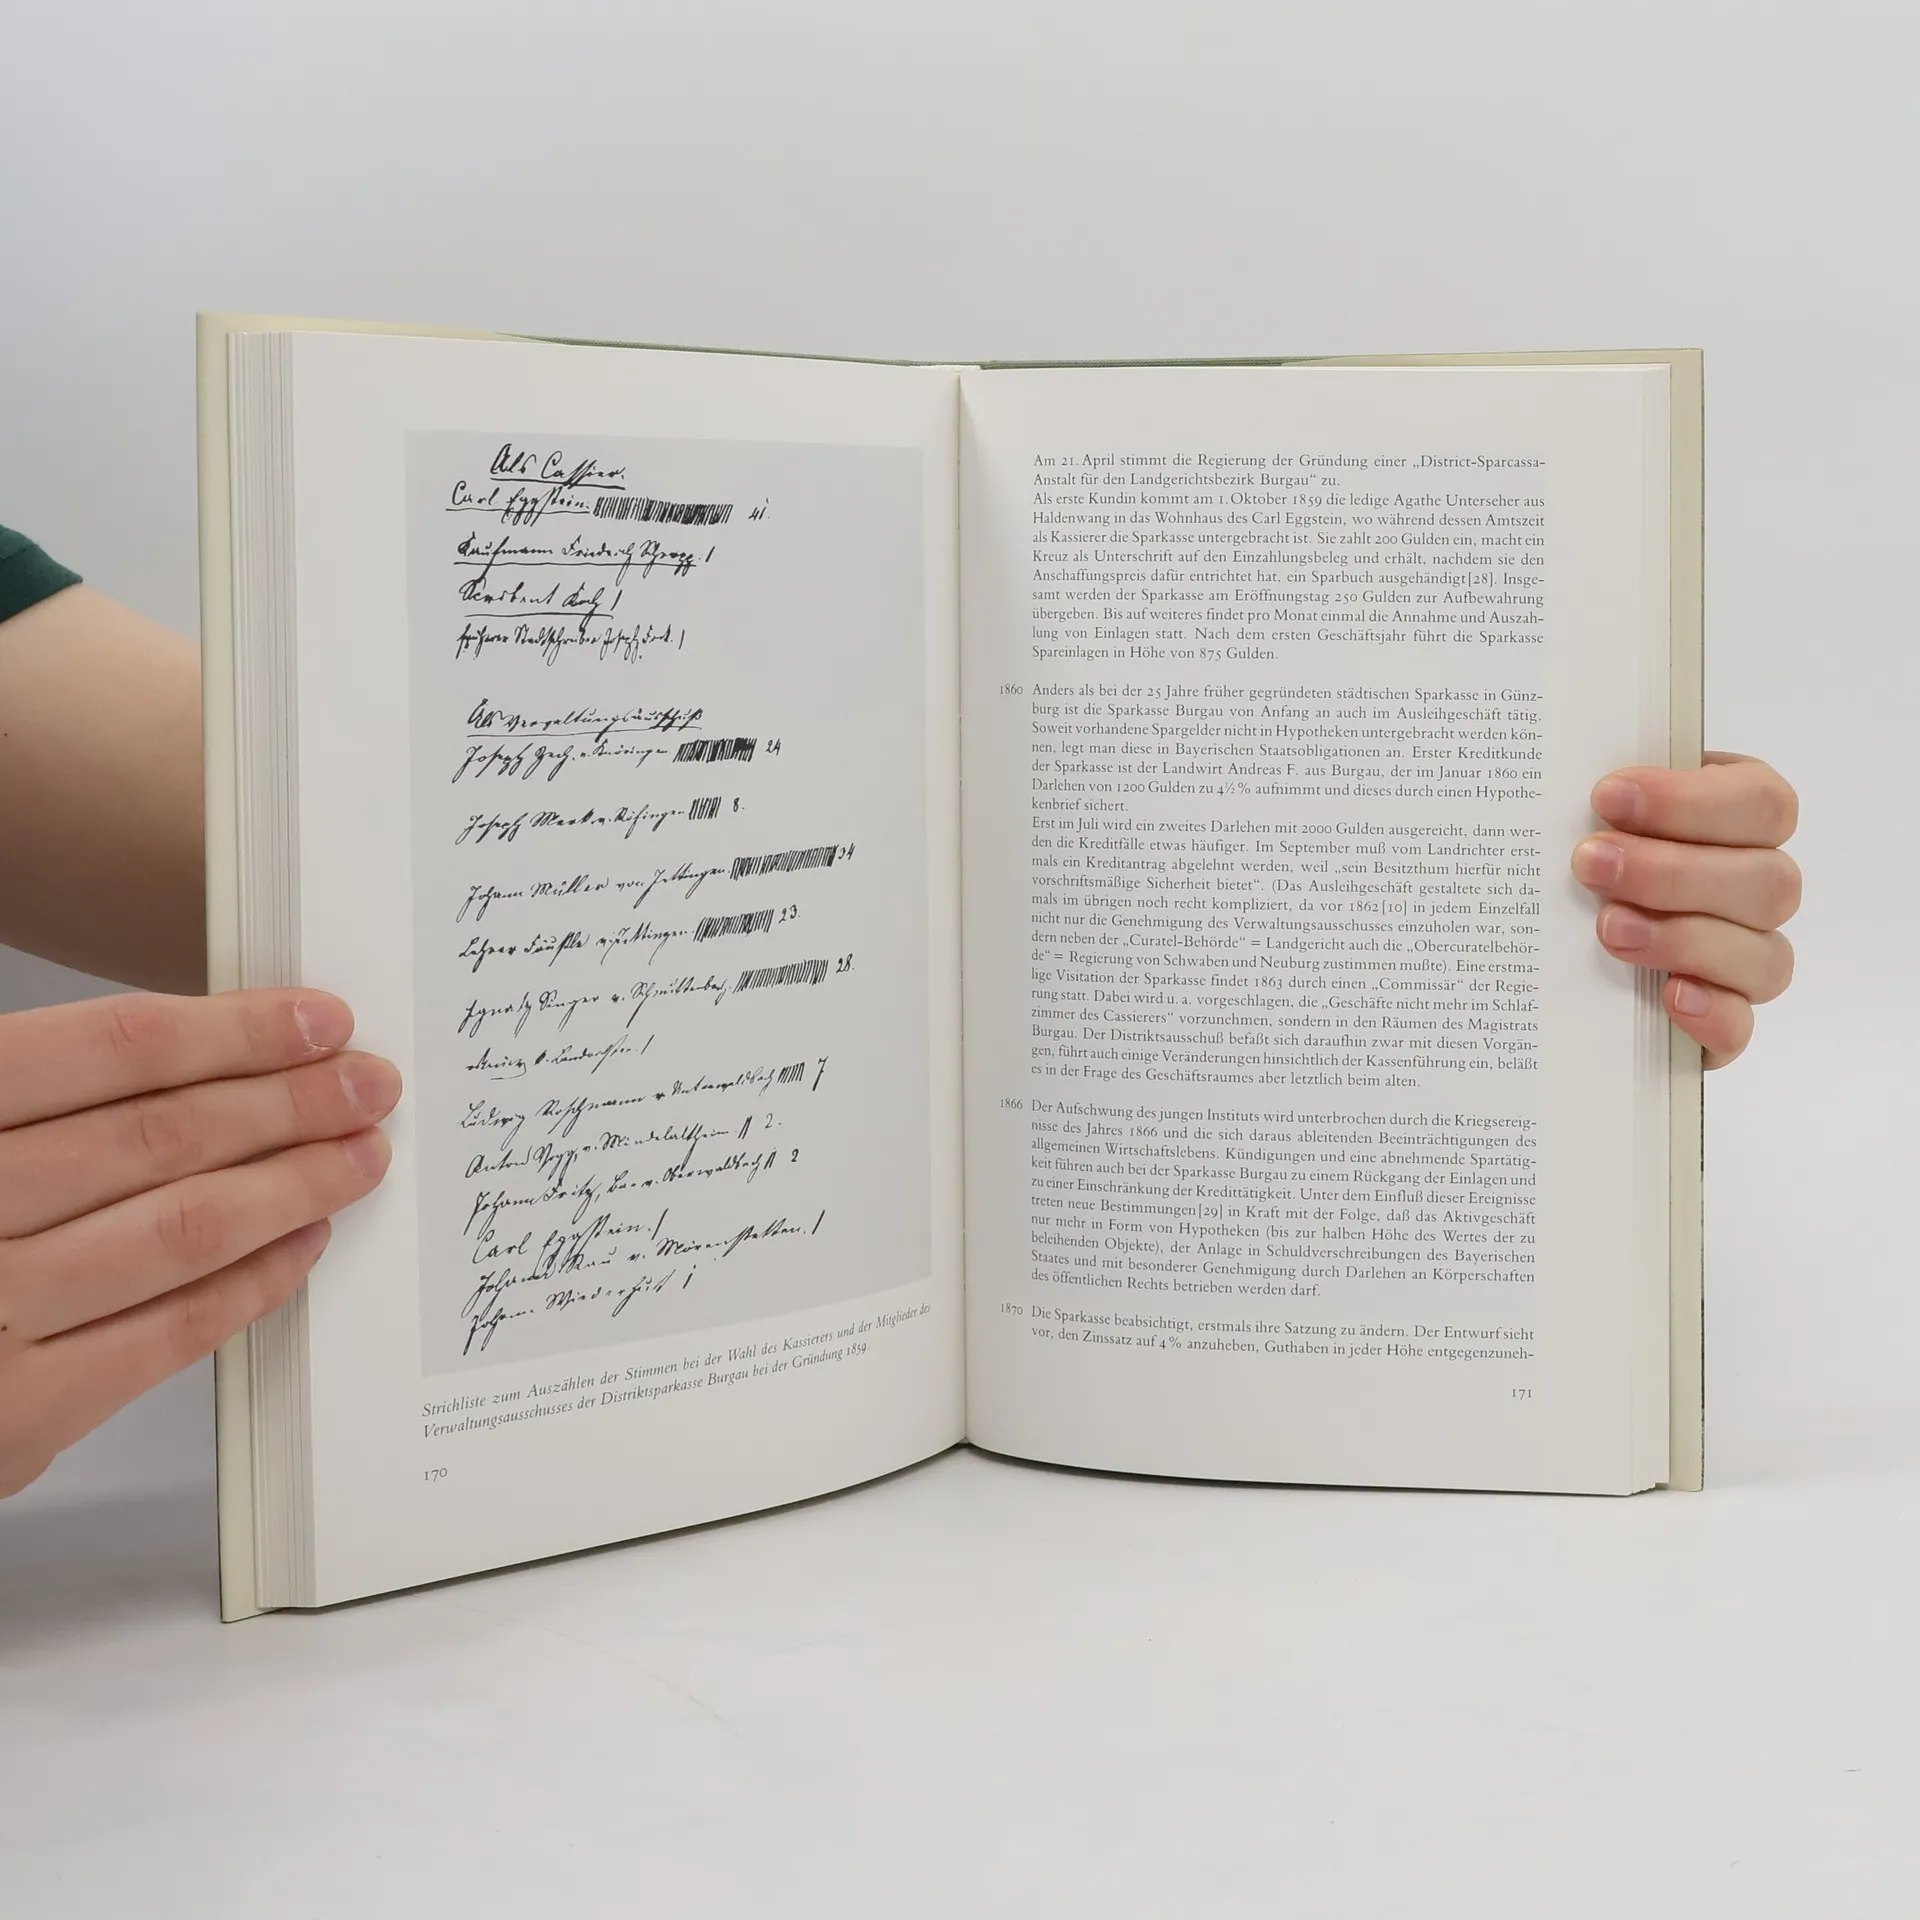 Als Cassier.
Carl Eggstein. 41.
Kaufmann Friedrich 1
Scribent 1
früherer Stadtschreiber Joseph 1
Als Verwaltungsausschuß
Joseph v. Knöringen 24
Joseph Merk v. Röfingen 8.
Johann Müller von Jettingen. 34
Lehrer v. Jettingen. 23.
Ignatz Singer v. 28.
1
Ludwig v Unterwaldbach 7
Anton v. Mindelaltheim 2.
Johann Fritz, v. Oberwaldbach 2
Carl Eggstein. /
Johann Rau v. Mönstetten. /
Johann 1
Strichliste zum Auszählen der Stimmen bei der Wahl des Kassierers und der Mitglieder des
Verwaltungsausschusses der Distriktsparkasse Burgau bei der Gründung 1859.
170
Am 21. April stimmt die Regierung der Gründung einer „District-Sparcassa-
Anstalt für den Landgerichtsbezirk Burgau“ zu.
Als erste Kundin kommt am 1. Oktober 1859 die ledige Agathe Unterseher aus
Haldenwang in das Wohnhaus des Carl Eggstein, wo während dessen Amtszeit
als Kassierer die Sparkasse untergebracht ist. Sie zahlt 200 Gulden ein, macht ein
Kreuz als Unterschrift auf den Einzahlungsbeleg und erhält, nachdem sie den
Anschaffungspreis dafür entrichtet hat, ein Sparbuch ausgehändigt[28]. Insge-
samt werden der Sparkasse am Eröffnungstag 250 Gulden zur Aufbewahrung
übergeben. Bis auf weiteres findet pro Monat einmal die Annahme und Auszah-
lung von Einlagen statt. Nach dem ersten Geschäftsjahr führt die Sparkasse
Spareinlagen in Höhe von 875 Gulden.
1860 Anders als bei der 25 Jahre früher gegründeten städtischen Sparkasse in Günz-
burg ist die Sparkasse Burgau von Anfang an auch im Ausleihgeschäft tätig.
Soweit vorhandene Spargelder nicht in Hypotheken untergebracht werden kön-
nen, legt man diese in Bayerischen Staatsobligationen an. Erster Kreditkunde
der Sparkasse ist der Landwirt Andreas F. aus Burgau, der im Januar 1860 ein
Darlehen von 1200 Gulden zu 4½% aufnimmt und dieses durch einen Hypothe-
kenbrief sichert.
Erst im Juli wird ein zweites Darlehen mit 2000 Gulden ausgereicht, dann wer-
den die Kreditfälle etwas häufiger. Im September muß vom Landrichter erst-
mals ein Kreditantrag abgelehnt werden, weil „sein Besitzthum hierfür nicht
vorschriftsmäßige Sicherheit bietet“. (Das Ausleihgeschäft gestaltete sich da-
mals im übrigen noch recht kompliziert, da vor 1862[10] in jedem Einzelfall
nicht nur die Genehmigung des Verwaltungsausschusses einzuholen war, son-
dern neben der „Curatel-Behörde“ = Landgericht auch die „Obercuratelbehör-
de“ = Regierung von Schwaben und Neuburg zustimmen mußte). Eine erstma-
lige Visitation der Sparkasse findet 1863 durch einen „Commissär“ der Regie-
rung statt. Dabei wird u. a. vorgeschlagen, die „Geschäfte nicht mehr im Schlaf-
zimmer des Cassierers“ vorzunehmen, sondern in den Räumen des Magistrats
Burgau. Der Distriktsausschuß befaßt sich daraufhin zwar mit diesen Vorgän-
gen, führt auch einige Veränderungen hinsichtlich der Kassenführung ein, beläßt
es in der Frage des Geschäftsraumes aber letztlich beim alten.
1866 Der Aufschwung des jungen Instituts wird unterbrochen durch die Kriegsereig-
nisse des Jahres 1866 und die sich daraus ableitenden Beeinträchtigungen des
allgemeinen Wirtschaftslebens. Kündigungen und eine abnehmende Spartätig-
keit führen auch bei der Sparkasse Burgau zu einem Rückgang der Einlagen und
zu einer Einschränkung der Kredittätigkeit. Unter dem Einfluß dieser Ereignisse
treten neue Bestimmungen[29] in Kraft mit der Folge, daß das Aktivgeschäft
nur mehr in Form von Hypotheken (bis zur halben Höhe des Wertes der zu
beleihenden Objekte), der Anlage in Schuldverschreibungen des Bayerischen
Staates und mit besonderer Genehmigung durch Darlehen an Körperschaften
des öffentlichen Rechts betrieben werden darf.
1870 Die Sparkasse beabsichtigt, erstmals ihre Satzung zu ändern. Der Entwurf sieht
vor, den Zinssatz auf 4% anzuheben, Guthaben in jeder Höhe entgegenzuneh-
171